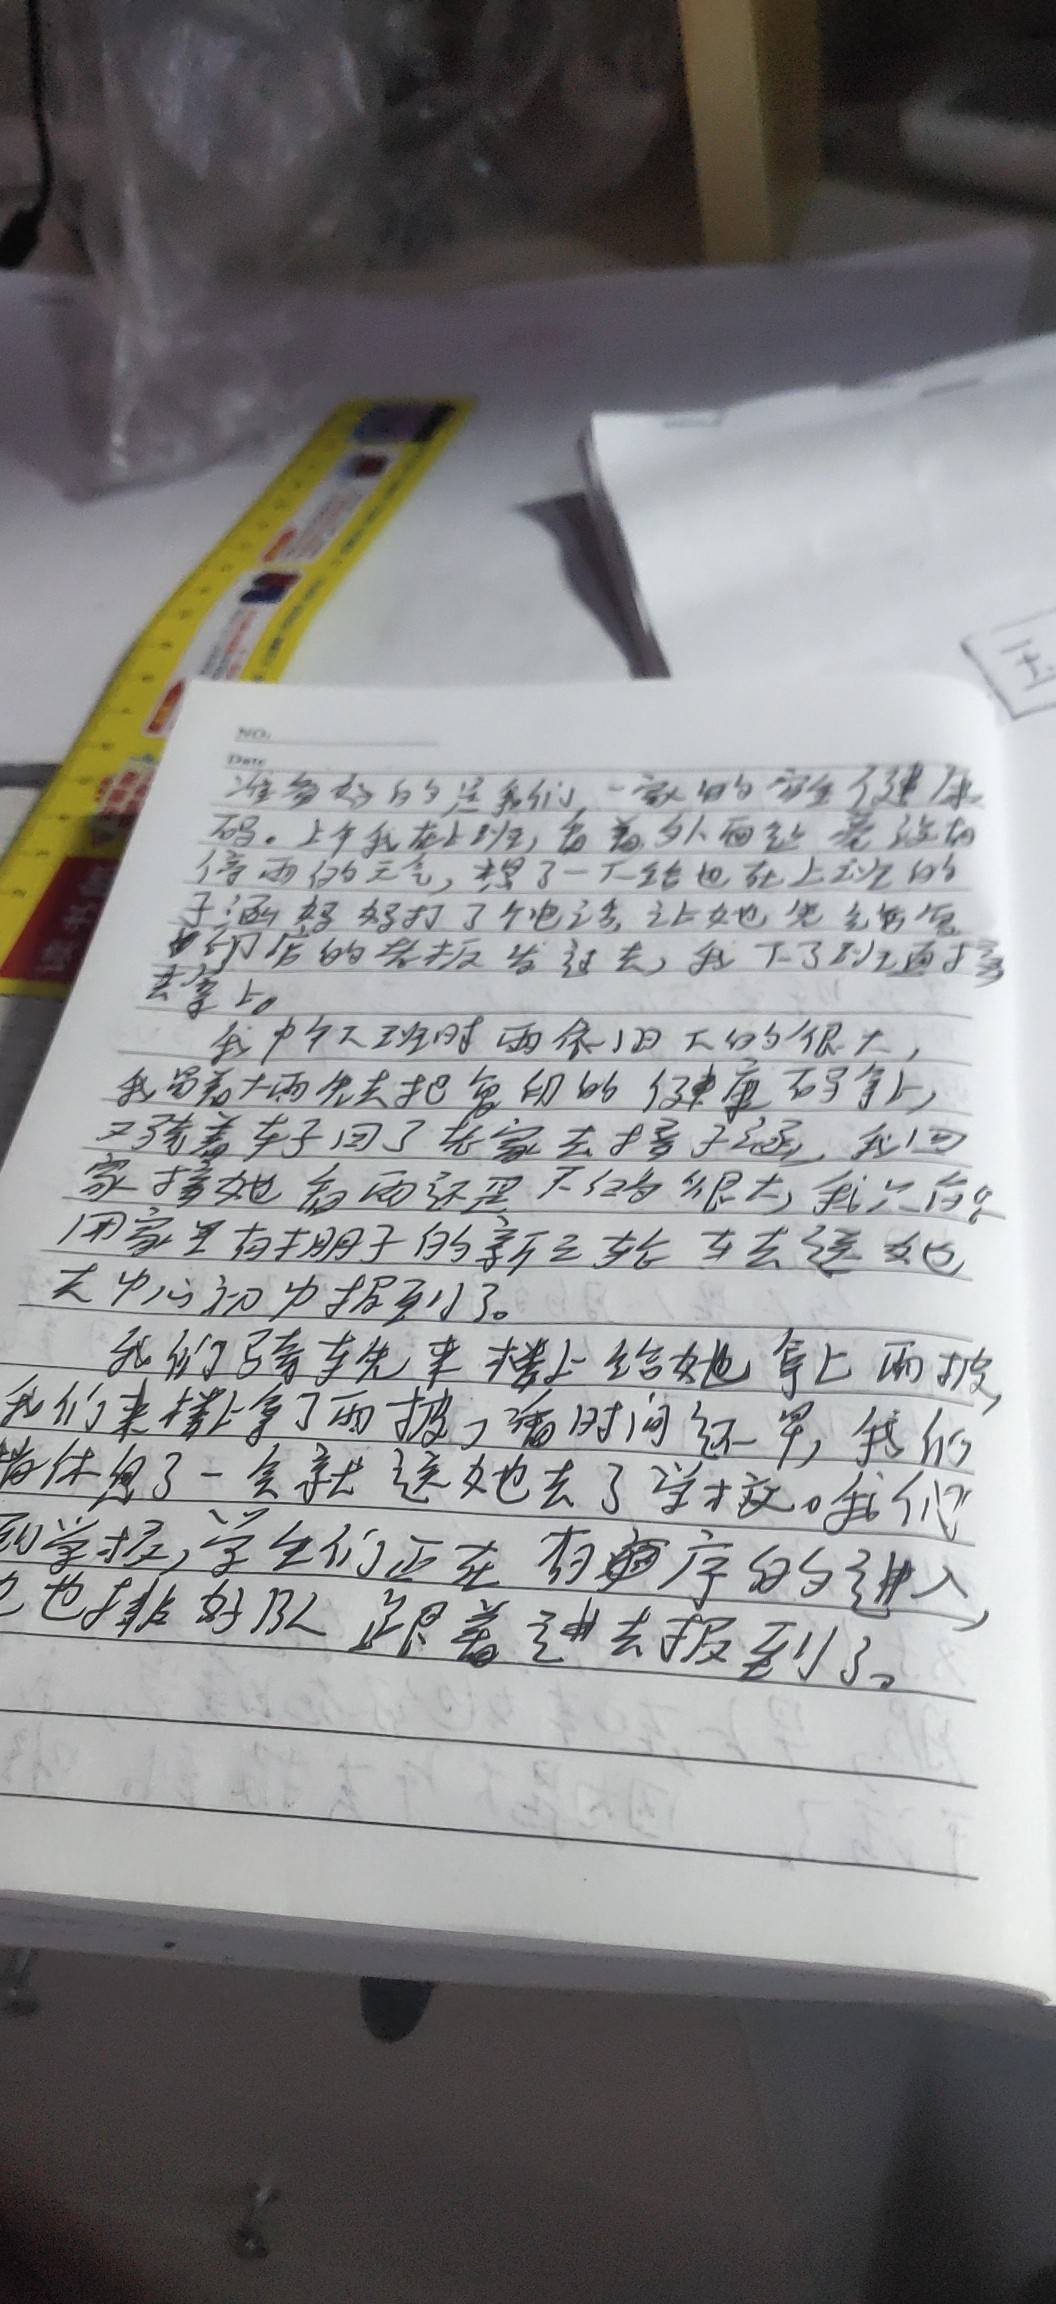 NO.
Date
准备好的是我们一家的安全健康
码。上午我在上班,看着外面些毫没有
停雨的天气,想了一下给也在上班的
子涵妈妈打了个电话,让她先
印店的老板发过去,我下了班直接
去拿上。
我中午下班时雨依旧下的很大,
我冒着大雨先去把复印的健康码拿上,
又骑着车子回了老家去接子涵,我回
家接她看雨还是下的很大,我只有
用家里有棚子的新三轮车去送她
去中心初中报到了。
我们骑车先来楼上给她拿上雨披,
我们来楼上拿了雨披,看时间还早,我们
稍休息了一会就送她去了学校。我们
到学校,学生们正在有序的进入,
也排好队跟着进去报到了。
读书